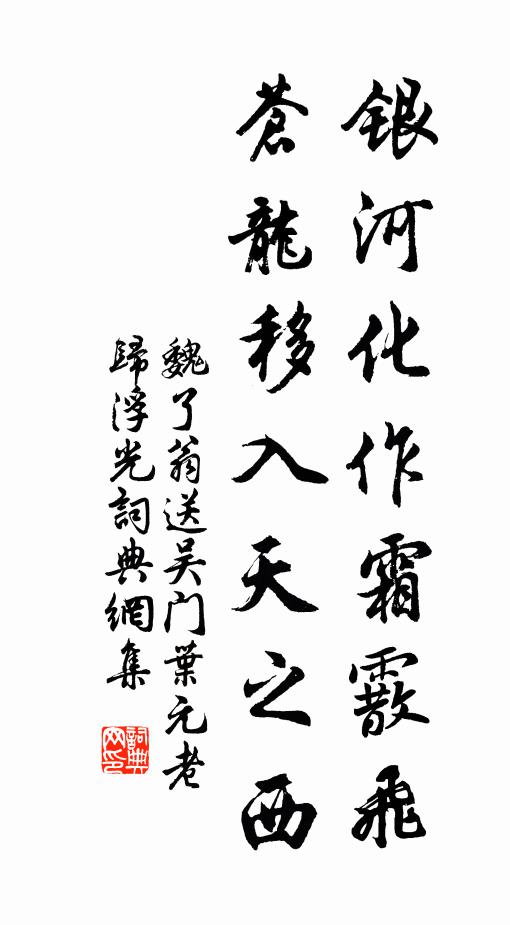 銀河化作霜霰飛
蒼龍移入天之西
魏了翁送吴门葉元老
歸浮光詞典網集
詞典網印